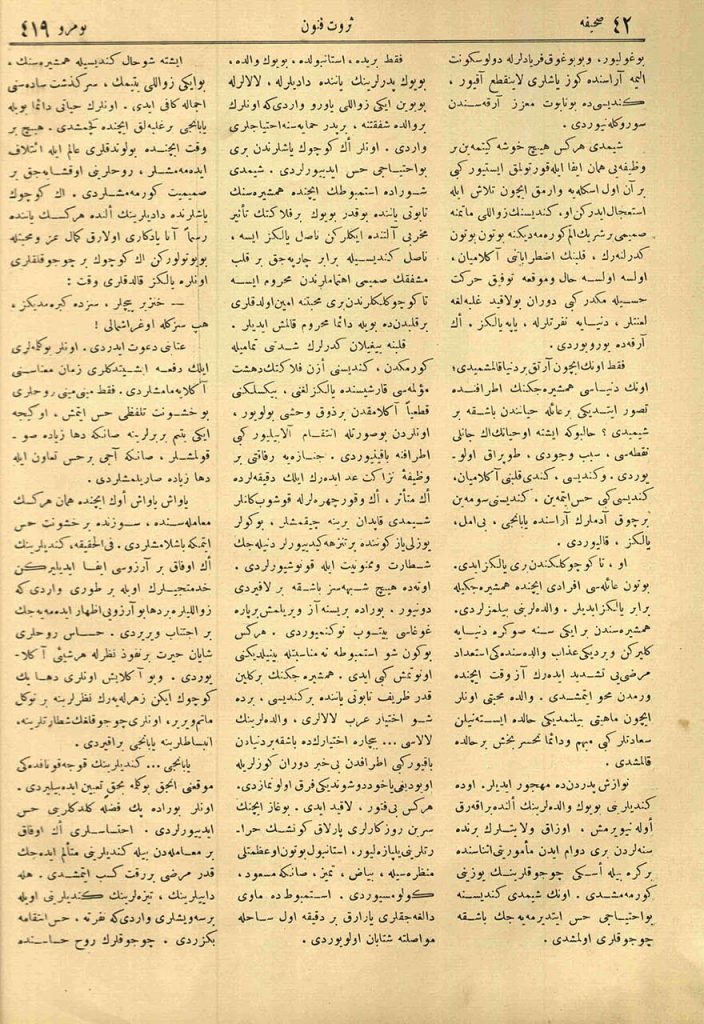 صحیفه ٤٢
ثروت فنون
نومرو ٤١٩
بوغولیور، و بوبوغوق فریادلرله دولوسکونت
الیمه آراسنده کوز یاشلری لاینقطع آقیور ،
کندیسی ده بوتابوت معزز آرقه سندن
سوروکله نیوردی .
شیمدی هرکس هیچ خوشه کیتمه ین بر
وظیفه یی همان ایفا ایله قورتولمق ایستیور کبی
بر آن اول اسکله یه وارمق ایچون تلاش ایله
استعجال ایدرکن او، کندیسنك زواللی ماتمنه
صمیمی بر شریك الم کورمه مدیکنه بوتون بوتون
کدرلنه رك ، قلبنك اضطراباتی آکلامیان ،
اولسه اولسه حال وموقعه توفیق حرکت
حسیله مکدر کبی دوران بولاقید غلبه لغه
لعنتلر ، دنیایه نفرتلرله ، یاپه یالکز . أك
آرقه ده یوریوردی .
فقط اونك ایچون آرتق بر دنیا قالمشمیدی؛
اونك دنیاسی همشیره جکنك اطرافنده
تصور ایتدیکی بر عائله حیاتندن باشقه بر
شیمیدی ؟ حالبوکه ایشته اوحیاتك اك جانلی
نقطه سی ، سبب وجودی ، طوپراق اولو-
یوردی . وکندیسی ، کندی قلبنی آکلامیان،
کندیسی کبی حس ایتمه ین . کندیسنی سومه ین
بر چوق آدملرك آراسنده یابانجی ، بی امل،
یالکز ، قالیوردی .
او ، تا کوچوکلکندن بری یالکز ایدی.
بوتون عائله سی افرادی ایچنده همشیره جکیله
برابر یالکز ایدیلر . والده لرینی بیلمزلردی.
همشیره سندن بر ایکی سنه صوکره دنیایه
کلیرکن ویردیکی عذاب والده سنده کی استعداد
مرضی یی تشدید ایده رك آز وقت ایچنده
ورمدن محو ایتمشدی . والده محبتی اونلر
ایچون ماهیتی بیلنمدیکی حالده ایسته نیلن
سعادتلر کبی مبهم ودائما تحسر بخش بر حالده
قالمشدی .
نوازش پدردن ده مهجور ایدیلر. اوده
کندیلرینی بویوك والده لرینك ألنده براقه رق
أوله نیویرمش . اوزاق ولایتلرك برنده
سنه لردن بری دوام ایدن مأموریتی اثناسنده
بر کره بیله أسکی چوجوقلرینك یوزینی
کورمه مشدی . اونك شیمدی کندیسنه
بواحتیاجی حس ایتدیرمه یه جك باشقه
چوجوقلری اولمشدی .
فقط بریده ، استانبولده ، بویوك والده ،
بویوك پدرلرینك یاننده دادیلرله ، لالالرله
بویوین ایکی زواللی یاورو واردی که اونلرك
بر والده شفقتنه ، بر پدر حمایه سنه احتیاجلری
واردی . اونلر أك کوچوك یاشلرندن بری
بواحتیاجی حس ایدییورلردی . شیمدی
شوراده استمبوطك ایچنده همشیره سنك
تابوتی یاننده بوقدر بویوك بر فلاکتك تأثیر
مخربی آلتنده ایکلرکن ناصل یالکز ایسه ،
ناصل کندیسیله برابر چارپه جق بر قلب
مشفقك صمیمی اهتماملرندن محروم ایسه
تا کوچوکلکلرندن بری محبتنه امین اولدقلری
بر قلبدن ده بویله دائما محروم قالمش ایدیلر.
قلبنه ییغیلان کدرلرك شدتی تمامیله
کورمکدن ، کندیسنی أزن فلاکتك دهشت
مؤلمه سی قارشیسنده یالکزلغنی ، بیکسلکنی
قطعیاً آکلامقدن بر ذوق وحشی بولویور،
اونلردن بوصورتله انتقام آلابیلیور کبی
اطرافنه باقینیوردی . جنازه یه رفاقتی بر
وظیفهٔ نزاکت عد ایده رك ایلك دقیقه لرده
أك متأثر ، أك وقور چهره لرله قوشوب کلنلر
شیمدی قاپدان یرینه چیقمشلر ، بوکولر
یوزلی یاز کوننده بر تنزهه کیدییورلر دنیله جك
شطارت وممنونیت ایله قونوشیورلردی .
اوته ده هیچ شبهه سز باشقه بر لاقیردی
دونیور . بوراده بریسنه آز ویریلمش بر پاره
غوغاسی بیتوب توکنمیوردی . هرکس
بوکون شو استمبوطه نه مناسبتله بینیلدیکنی
اونوتمش کبی ایدی . همشیره جکنك بر کلین
قدر ظریف تابوتی یاننده بر کندیسی ، برده
شو اختیار عرب لالالری ، والده لرینك
لالاسی ... بیچاره اختیارك ده باشقه بر دنیادن
باقیور کبی اطرافدن بی خبر دوران کوزلریله
اویودیغی یاخود دوشوندیکی فرق اولونمازدی.
هرکس بی فتور ، لاقید ایدی . بوغاز ایچنك
سرین روزکارلری پارلاق کونشك حرا-
رتلرینی یلپازه لیور، استانبول بوتون اوعظمتلی
منظره سیله ، بیاض ، تمیز، صانکه مسعود،
کولومسیوردی . استمبوط ده ماوی
دالغه جقلری یارارق بر دقیقه اول ساحله
مواصلته شتابان اولویوردی .
ایشته شو حال کندیسیله همشیره سنك ،
بوایکی زواللی یتیمك ، سرکذشت ساده سنی
اجماله کافی ایدی . اونلرك حیاتی دائما بویله
یابانجی بر غلبه لق ایچنده کچمشدی . هیچ بر
وقت ایچنده بولوندقلری عالم ایله ائتلاف
ایده مه مشلر ، روحلرینی اوقشایه جق بر
صمیمیت کورمه مشلردی . اك کوچوك
یاشلرنده دادیلرینك ألنده هرکسك یاننده
رسماً آنا یادکاری اولارق کمال عز ومحبتله
بویوتولورکن اك کوچوك بر چوجوقلقلری
اونلره یالکز قالدقلری وقت :
— خنزیر پیچلر . سزده کبره مدیکز ،
هب سزکله اوغراشمالی !
عتابنی دعوت ایدردی . اونلر بوکله لری
ایلك دفعه ایشیتدکلری زمان معناسنی
آکلایه مامشلردی . فقط مینی مینی روحلری
بو خشونت تلفظی حس ایتمش ، اوکیجه
ایکی یتیم بربرلرینه صانکه دها زیاده صو-
قولمشلر ، صانکه آجی بر حس تعاون ایله
دها زیاده صاریلمشلردی .
یاواش یاواش أوك ایچنده همان هرکسك
معامله سنده ، سوزنده بر خشونت حس
ایتمکه باشلامشلردی . فی الحقیقه، کندیلرینك
أك اوفاق بر آرزوسی ایفا ایدیلیرکن
خدمتجیلرك اویله بر طوری واردی که
زواللیلره بر دها بو آرزویی اظهار ایده مه یه جك
بر اجتناب ویریردی . حساس روحلری
شایان حیرت بر نفوذ نظرله هر شیئی آکلا-
یوردی . وبو آکلایش اونلری دها پك
کوچوك ایکن زهرله یه رك نظرلرینه بر توکل
ماتم ویریر، اونلری چوجوقلغك شطارتلرینه،
انبساطلرینه یابانجی براقیردی .
یابانجی ... کندیلرینك قوجه قوناقده کی
موقعنی آنجق بوکله بحق تعیین ایده بیلیردی .
اونلر بوراده پك فضله کلدکلرینی حس
ایدییورلردی . احتساسلری أك اوفاق
بر معامله دن بیله کندیلرینی متألم ایده جك
قدر مرضی بر رقت کسب ایتمشدی . هله
داییلرینك ، تیزه لرینك کندیلرینی اویله
بر سه ویشلری واردی که نفرته ، حس انتقامه
بکزردی . چوجوقلرك روح حسـاسنده